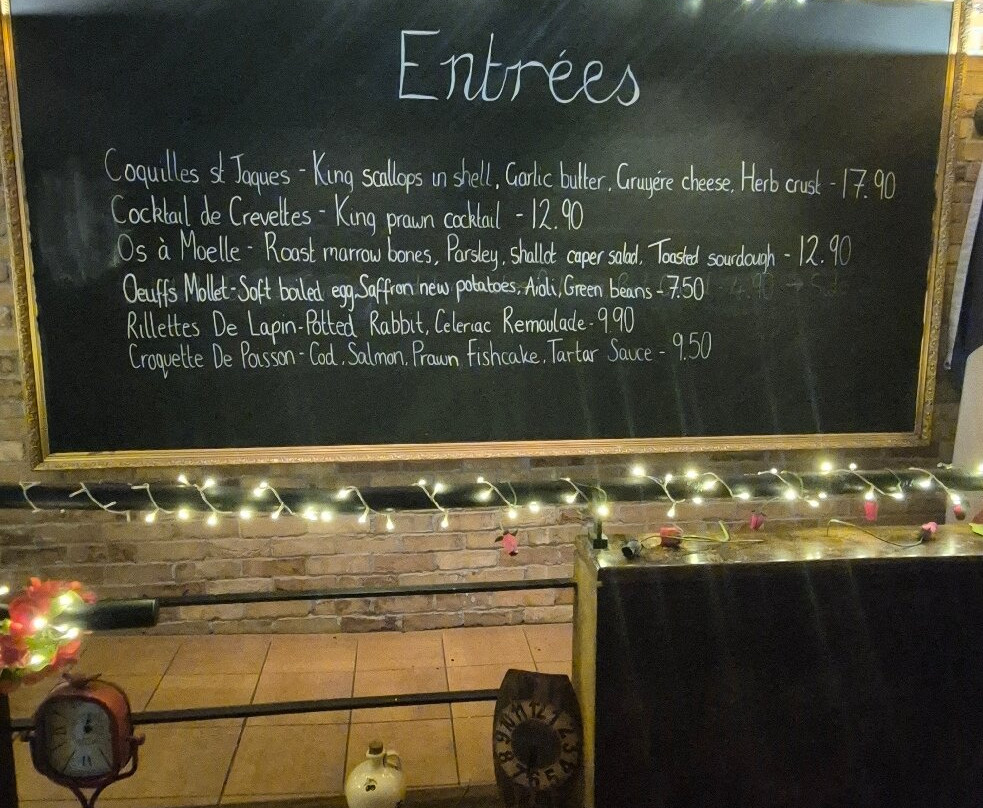 Entrées
Coquilles st Jaques - King scallops in shell, Garlic butter, Gruyére cheese, Herb crust - 17.90
Cocktail de Crevettes - King prawn cocktail - 12.90
Os à Moelle - Roast marrow bones, Parsley, shallot caper salad, Toasted sourdough - 12.90
Oeuffs Mollet - Soft boiled egg, Saffron new potatoes, Aioli, Green beans - 7.50
Rillettes De Lapin - Potted Rabbit, Celeriac Remoulade - 9.90
Croquette De Poisson - Cod, Salmon, Prawn Fishcake, Tartar Sauce - 9.50